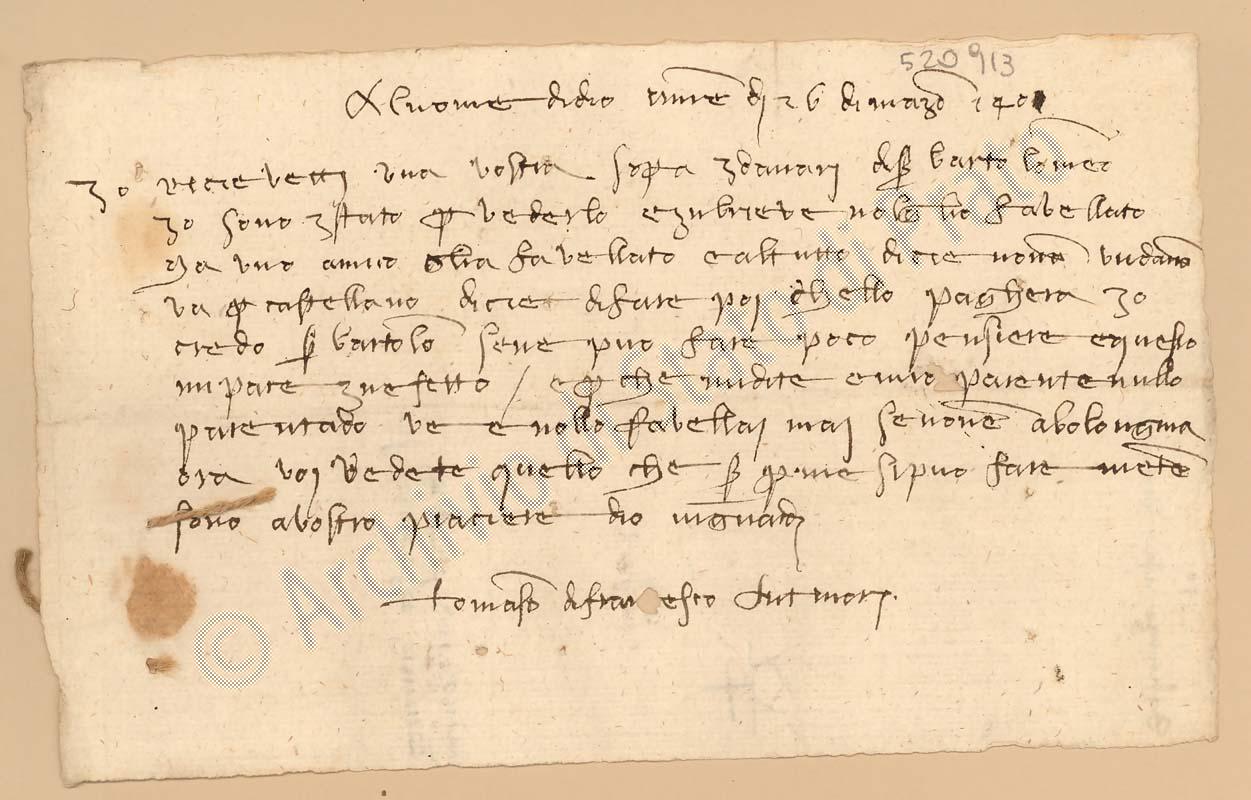 520913
Al nome di dio amen di 26 di marzo 140
Io ricievetti una vostra sopra i danari di S bartolomeo
Io sono istato p vederlo e in brieve no gli ho favellato
ma uno amicho gli a favellato e al tutto dicie
va p castellano dicie di fare poi chello paghera Io
credo S bartolo sene puo fare poco pensiere e questo
mi pare in efetto / e p che mi dite e mio parente nullo
parentado ve e nollo favellai mai se none a bolongnia
ora voi vedete quello che p me si puo fare
sono a vostro piaciere dio vi guardi
tomaso di franciesco
© Archivio di Stato di Prato